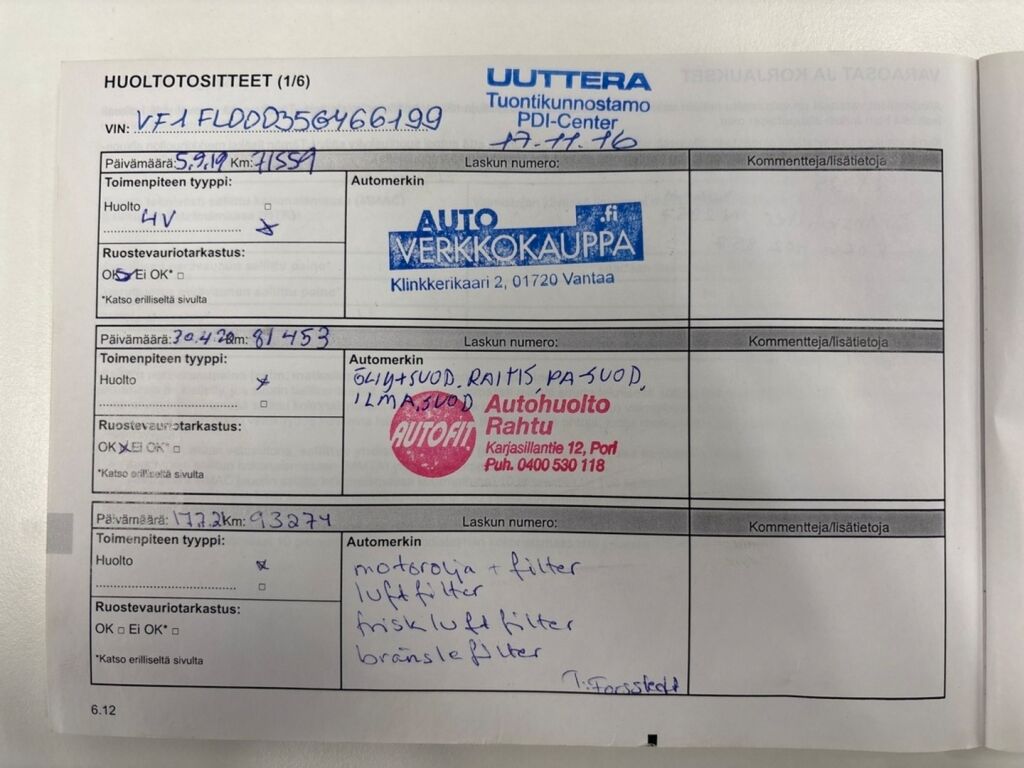 HUOLTOTOSITTEET (1/6)
UUTTERA
Tuontikunnostamo
PDI-Center
17.11.16
VIN: VF1FL000356466199
Päivämäärä: 5.9.19 Km: 71559 Laskun numero: Kommentteja/lisätietoja
Toimenpiteen tyyppi:
Huolto
4V
Ruostevauriotarkastus:
OK Ei OK*
*Katso erilliseltä sivulta
Automerkin
AUTO .fi
VERKKOKAUPPA
Klinkkerikaari 2, 01720 Vantaa
Päivämäärä: 30.4.20 Km: 81453 Laskun numero: Kommentteja/lisätietoja
Toimenpiteen tyyppi:
Huolto
Ruostevauriotarkastus:
OK Ei OK*
*Katso erilliseltä sivulta
Automerkin
ÖLJY+SUOD, RAITIS, PA-SUOD,
ILMA.SUOD
AUTOFIT
Autohuolto
Rahtu
Karjasillantie 12, Pori
Puh. 0400 530 118
Päivämäärä: 17.7.2 Km: 93274 Laskun numero: Kommentteja/lisätietoja
Toimenpiteen tyyppi:
Huolto
Ruostevauriotarkastus:
OK Ei OK*
*Katso erilliseltä sivulta
Automerkin
motorolja + filter
luftfilter
friskluftfilter
bränslefilter
6.12